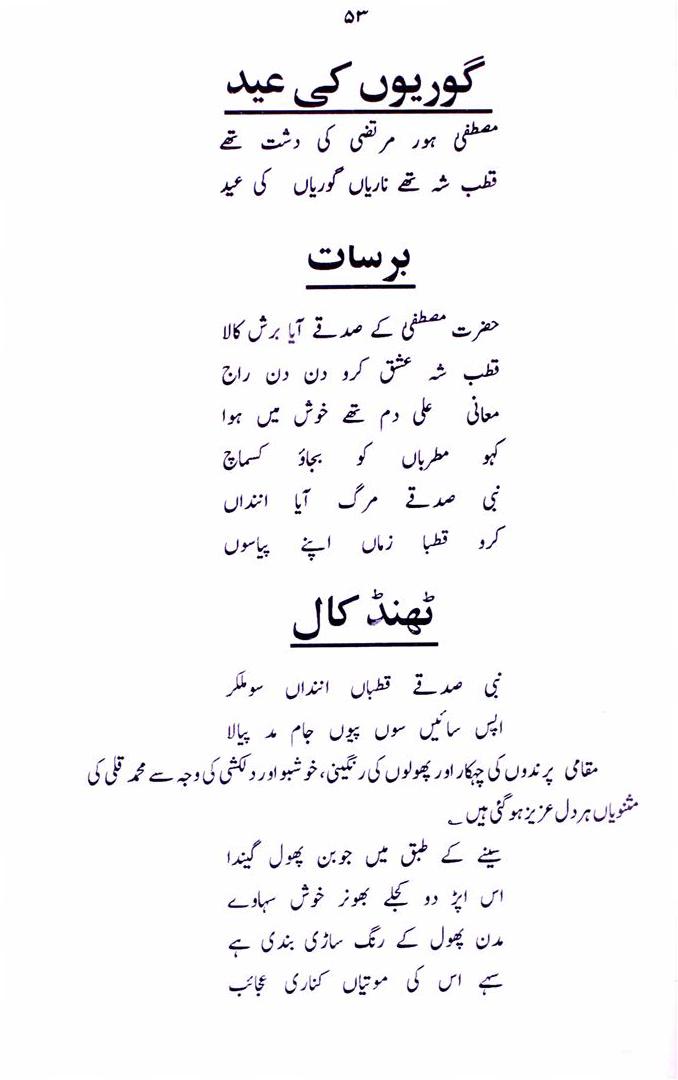 ۵۳
گوریوں کی عید
مصطفیٰ ہور مرتضیٰ کی دشت تھے
قطب شہ تھے ناریاں گوریاں کی عید
برسات
حضرت مصطفیٰ کے صدقے آیا برش کالا
قطب شہ عشق کرو دن دن راج
معانی علی دم تھے خوش میں ہوا
کہو مطرباں کو بجاؤ کسماچ
نبی صدقے مرگ آیا اننداں
کرو قطبا زماں اپنے پیاسوں
ٹھنڈ کال
نبی صدقے قطباں اننداں سوملکر
اپس سائیں سوں پیوں جام مد پیالا
مقامی پرندوں کی چہکار اور پھولوں کی رنگینی، خوشبو اور دلکشی کی وجہ سے محمد قلی کی
مثنویاں ہر دل عزیز ہو گئی ہیں ؎
سینے کے طبق میں جوبن پھول گیندا
اس اپڑ دو کجلے بھونر خوش سہاوے
مدن پھول کے رنگ ساڑی بندی ہے
سہے اس کی موتیاں کناری عجائب